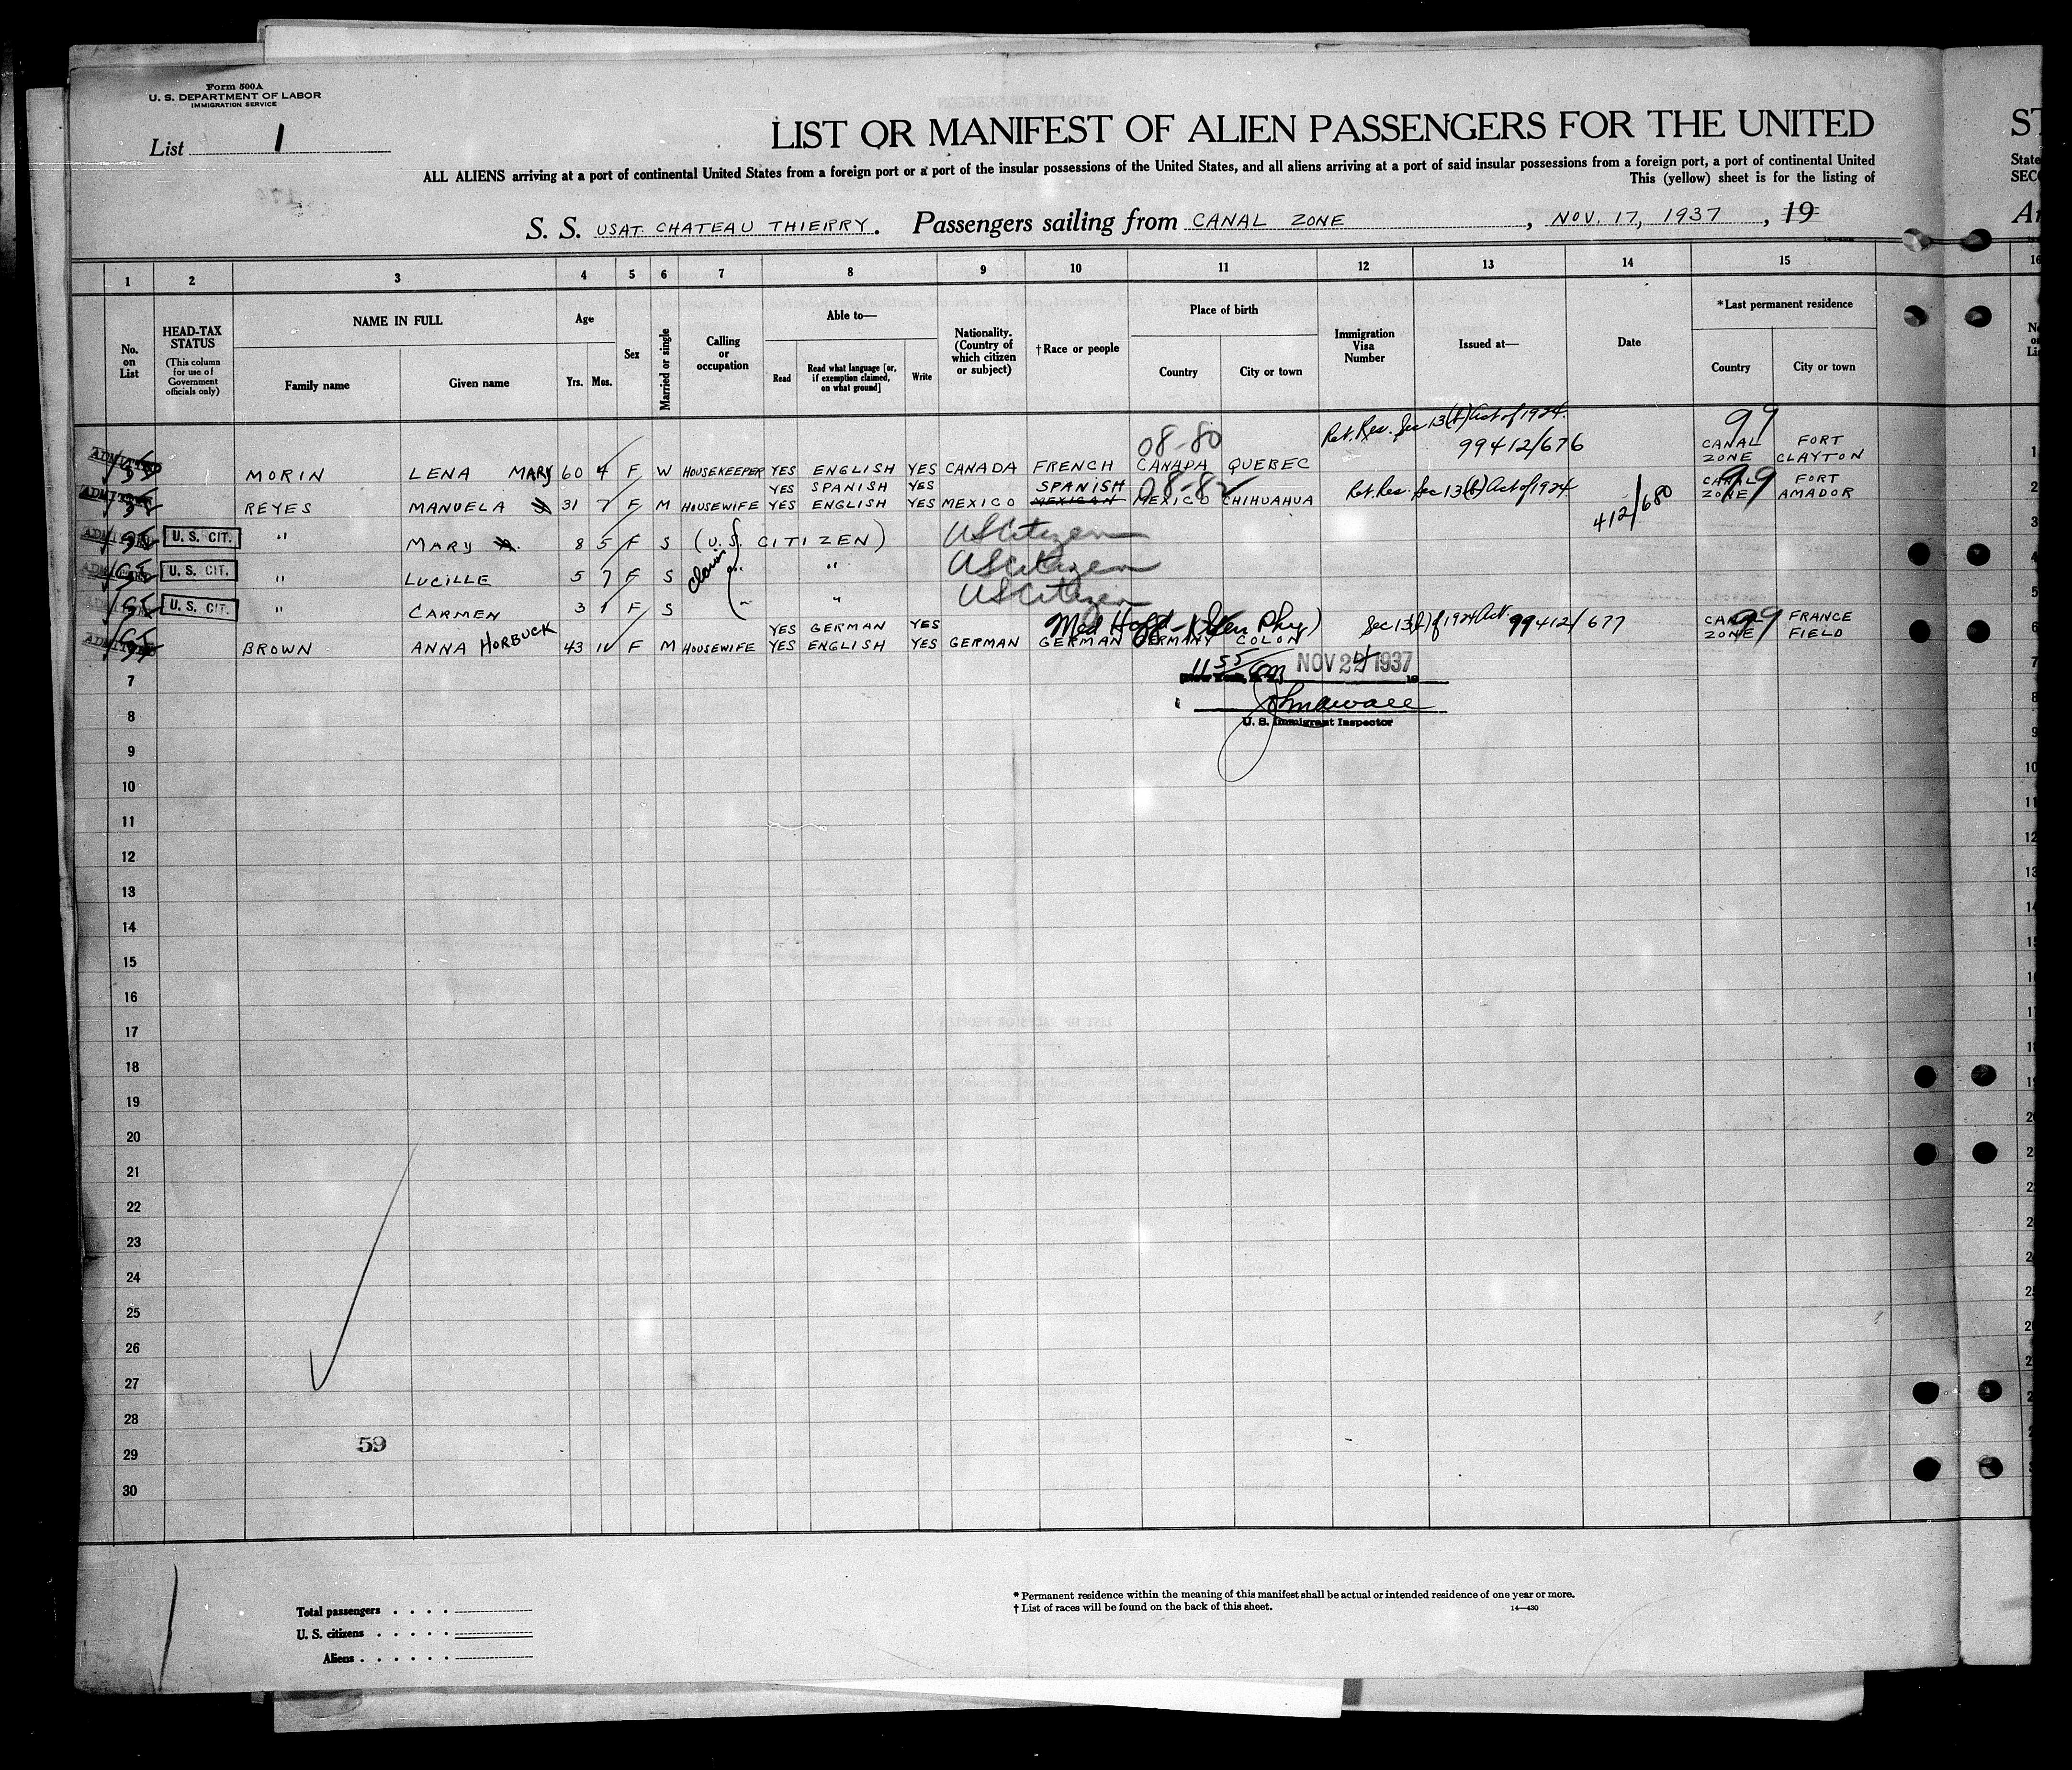 Form 500A
U. S. DEPARTMENT OF LABOR
IMMIGRATION SERVICE
List 1
LIST OR MANIFEST OF ALIEN PASSENGERS FOR THE UNITED
ALL ALIENS arriving at a port of continental United States from a foreign port or a port of the insular possessions of the United States, and all aliens arriving at a port of said insular possessions from a foreign port, a port of continental United
This (yellow) sheet is for the listing of
S. S. USAT. CHATEAU THIERRY. Passengers sailing from CANAL ZONE, NOV. 17, 1937, 19
ST
State
SEC
1 2 3 4 5 6 7 8 9 10 11 12 13 14 15 16
No. on List
HEAD-TAX STATUS
(This column for use of Government officials only)
NAME IN FULL
Family name
Given name
Age
Yrs. Mos.
Sex
Married or single
Calling or occupation
Able to—
Read
Read what language [or, if exemption claimed, on what ground]
Write
Nationality. (Country of which citizen or subject)
† Race or people
Place of birth
Country
City or town
Immigration Visa Number
Issued at—
Date
* Last permanent residence
Country
City or town
Ret. Res. Sec 13(b) Act of 1924.
08-80 99412/676 99
ADMITTED MORIN LENA MARY 60 4 F W HOUSEKEEPER YES ENGLISH YES CANADA FRENCH CANADA QUEBEC CANAL ZONE FORT CLAYTON
YES SPANISH YES SPANISH 08-82
ADMITTED REYES MANUELA 31 7 F M HOUSEWIFE YES ENGLISH YES MEXICO MEXICAN MEXICO CHIHUAHUA Ret. Res. Sec 13(b) Act of 1924 412/680 CANAL ZONE 99 FORT AMADOR
ADMITTED U. S. CIT. " MARY 8 5 F S (U.S. CITIZEN) US Citizen
ADMITTED U. S. CIT. " LUCILLE 5 7 F S " US Citizen
U. S. CIT. " CARMEN 3 1 F S " " US Citizen
YES GERMAN YES
ADMITTED BROWN ANNA HORBUCK 43 F M HOUSEWIFE YES ENGLISH YES GERMAN GERMAN GERMANY COLON Sec 13(b) of 1924 Act. 99412/677 CANAL ZONE 99 FRANCE FIELD
11 55 am NOV 24 1937
U. S. Immigrant Inspector
7
8
9
10
11
12
13
14
15
16
17
18
19
20
21
22
23
24
25
26
27
28
29
30
59
Total passengers
U. S. citizens
Aliens
* Permanent residence within the meaning of this manifest shall be actual or intended residence of one year or more.
† List of races will be found on the back of this sheet.
14—430